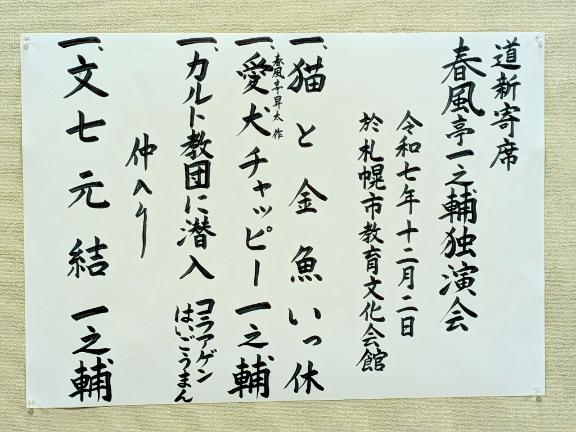 道新寄席
春風亭一之輔独演会
令和七年十二月二日
於札幌市教育文化会館
一、猫と金魚 いっ休
春風亭昇太 作
一、愛犬チャッピー 一之輔
一、カルト教団に潜入 コラアゲン
はいごうまん
仲入り
一、文七元結 一之輔